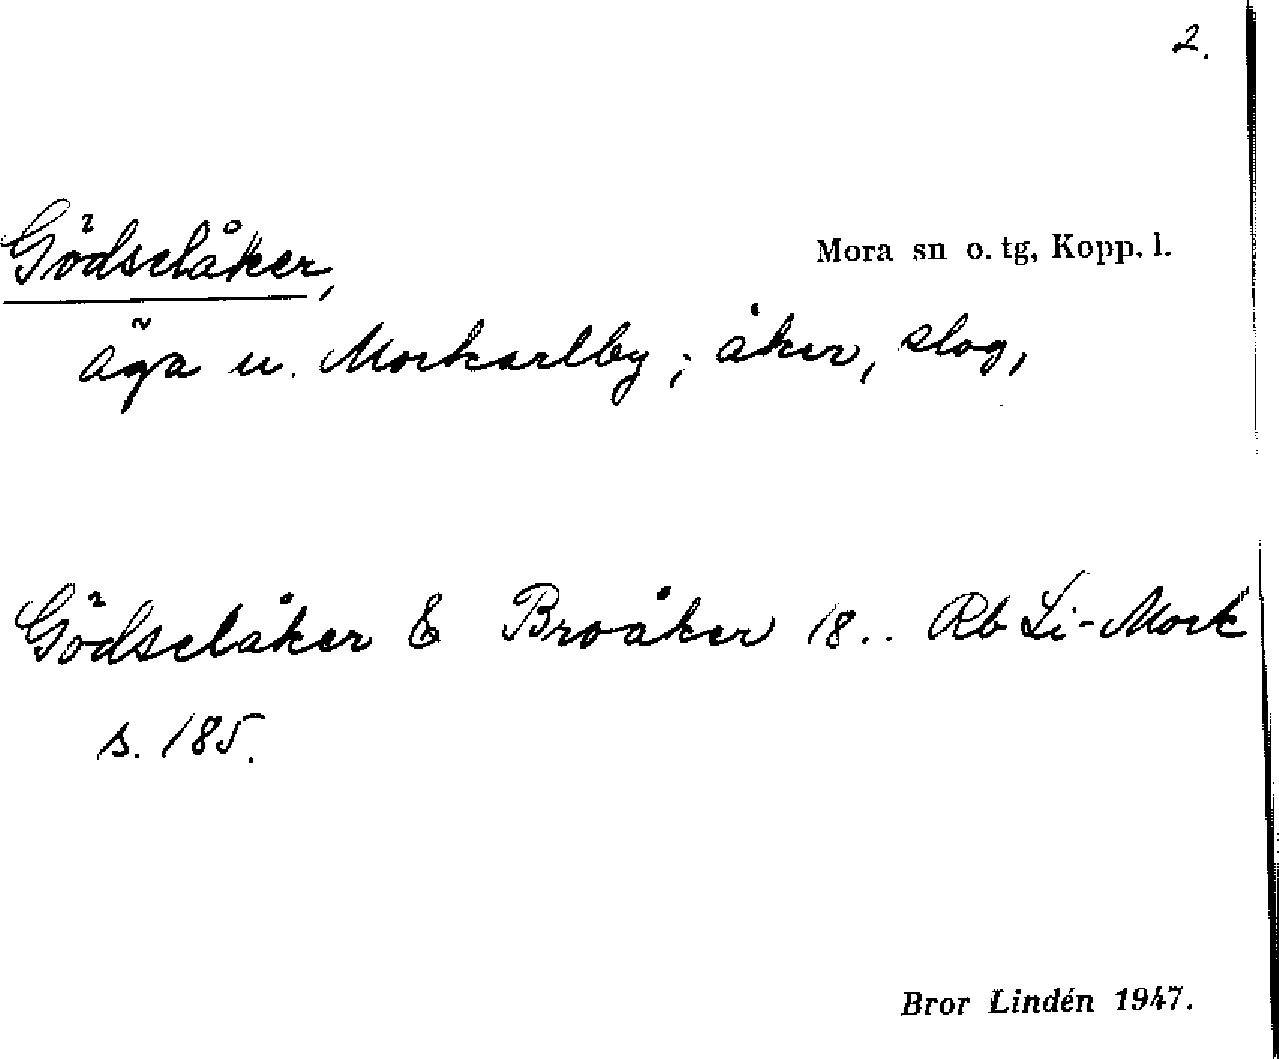 2.
Gödselåker, Mora sn o. tg, Kopp. l.
äga u. Morkarlby; åker, slog,
Gödselåker & Broåker 18.. Rb Li-Mork
s. 185.
Bror Lindén 1947.